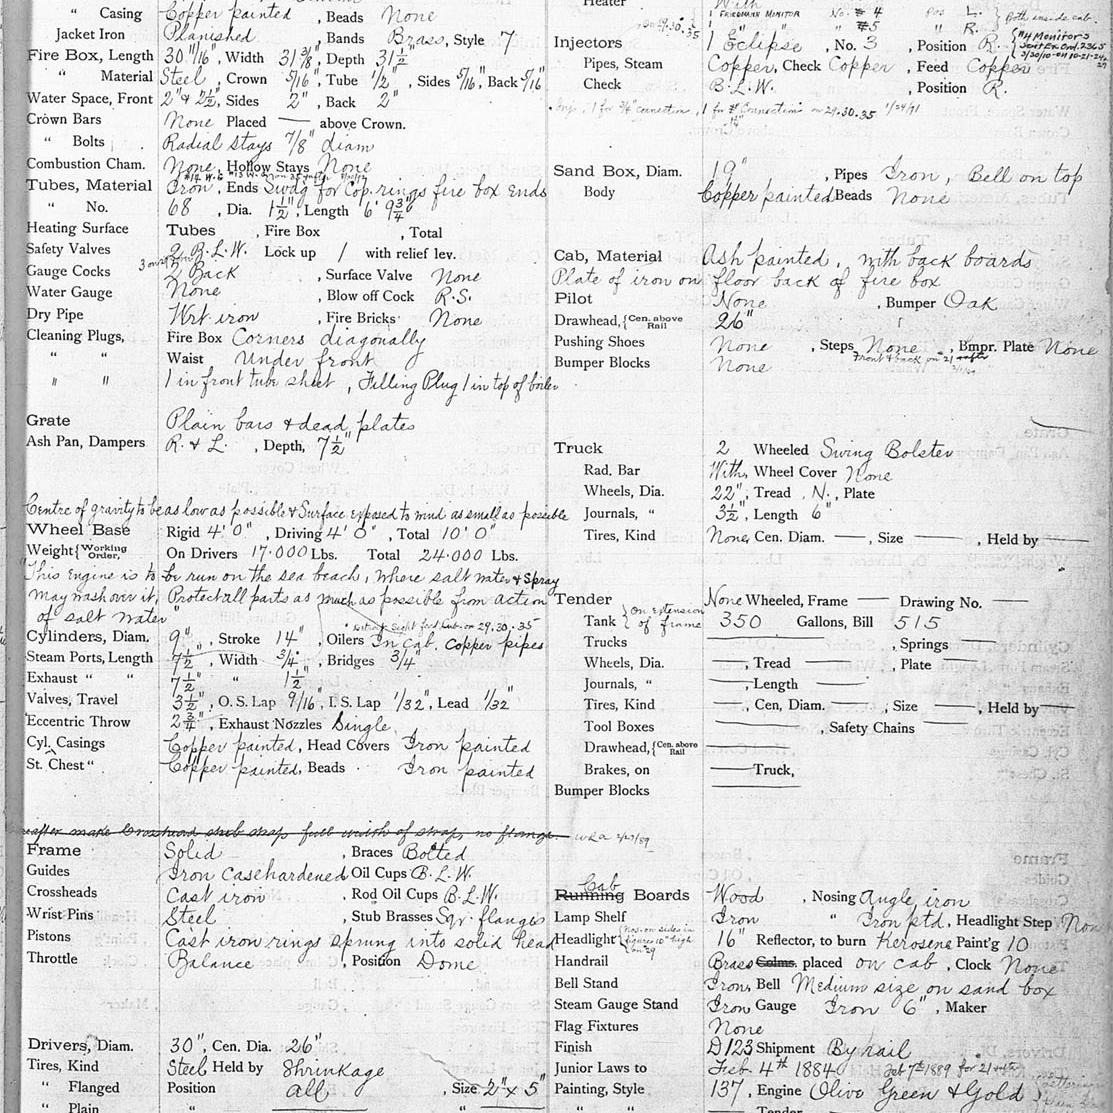 " Casing Copper painted, Beads None
Jacket Iron Planished, Bands Brass, Style 7
Fire Box, Length 30 11/16", Width 31 3/8", Depth 31 1/2"
" Material Steel, Crown 5/16", Tube 1/2", Sides 5/16", Back 5/16"
Water Space, Front 2" & 2 1/2", Sides 2", Back 2"
Crown Bars None Placed — above Crown.
" Bolts Radial stays 7/8" diam
Combustion Cham. None, Hollow Stays None
Tubes, Material Iron, Ends Swdg for Cop. rings fire box Ends
" No. 68, Dia. 1 1/2", Length 6' 9 3/4"
Heating Surface Tubes , Fire Box , Total
Safety Valves 2 B.L.W. Lock up 1 with relief lev.
Gauge Cocks 2 Back , Surface Valve None
Water Gauge None , Blow off Cock R.S.
Dry Pipe Wrt iron , Fire Bricks None
Cleaning Plugs, Fire Box Corners diagonally
" " Waist Under front
" " 1 in front tube sheet , Filling Plug 1 in top of boiler
Grate Plain bars & dead plates
Ash Pan, Dampers R. & L. , Depth, 7 1/2"
Centre of gravity to be as low as possible & Surface exposed to wind as small as possible
Wheel Base Rigid 4' 0" , Driving 4' 0" , Total 10' 0"
Weight {Working Order, On Drivers 17.000 Lbs. Total 24.000 Lbs.
"This Engine is to be run on the sea beach, where salt water & spray
may wash over it, Protect all parts as much as possible from action
of salt water"
Cylinders, Diam. 9", Stroke 14" , Oilers In Cab. Copper pipes
Steam Ports, Length 7 1/2", Width 3/4", Bridges 3/4"
Exhaust " " 7 1/2" " 1 1/2"
Valves, Travel 3 1/2", O.S. Lap 9/16", I.S. Lap 1/32", Lead 1/32"
Eccentric Throw 2 3/4", Exhaust Nozzles Single
Cyl. Casings Copper painted, Head Covers Iron painted
St. Chest " Copper painted, Beads Iron painted
make Crosshead stub strap full width of strap, no flange.
Frame Solid , Braces Bolted
Guides Iron Casehardened Oil Cups B.L.W.
Crossheads Cast iron , Rod Oil Cups B.L.W.
Wrist Pins Steel , Stub Brasses Sqr. flanges
Pistons Cast iron rings sprung into solid head
Throttle Balance , Position Dome
Drivers, Diam. 30", Cen. Dia. 26"
Tires, Kind Steel Held by Shrinkage
" Flanged Position all , Size 2" x 5"
" Plain " "
Heater With
1 Friedmann Monitor No. #4 Pos L. {Both inside cab.
" #5 " R.
Injectors 1 Eclipse , No. 3 , Position R.
Pipes, Steam Copper, Check Copper , Feed Copper
Check B.L.W. , Position R.
Sand Box, Diam. 19" , Pipes Iron, Bell on top
Body Copper painted Beads None
Cab, Material Ash painted, with back boards
Plate of iron on floor back of fire box
Pilot None , Bumper Oak
Drawhead, {Cen. above Rail 26"
Pushing Shoes None , Steps None , Bmpr. Plate None
Bumper Blocks None
Truck 2 Wheeled Swing Bolster
Rad. Bar With, Wheel Cover None
Wheels, Dia. 22", Tread N., Plate
Journals, " 3 1/2", Length 6"
Tires, Kind None, Cen. Diam. —, Size — , Held by —
Tender None Wheeled, Frame — Drawing No. —
Tank {on extension of frame 350 Gallons, Bill 515
Trucks — , Springs —
Wheels, Dia. —, Tread — , Plate
Journals, " —, Length —
Tires, Kind —, Cen, Diam. —, Size — , Held by —
Tool Boxes — , Safety Chains —
Drawhead, {Cen. above Rail —
Brakes, on — Truck,
Bumper Blocks —
Cab
Running Boards Wood , Nosing Angle iron
Lamp Shelf Iron " Iron ptd, Headlight Step Non
Headlight 16" Reflector, to burn Kerosene Paint'g 10
Handrail Brass Colms. placed on cab , Clock None
Bell Stand Iron, Bell Medium size on sand box
Steam Gauge Stand Iron Gauge Iron 6" , Maker
Flag Fixtures None
Finish D123 Shipment By rail
Junior Laws to Feb. 4th 1884
Painting, Style 137, Engine Olive Green & Gold
" " Tender